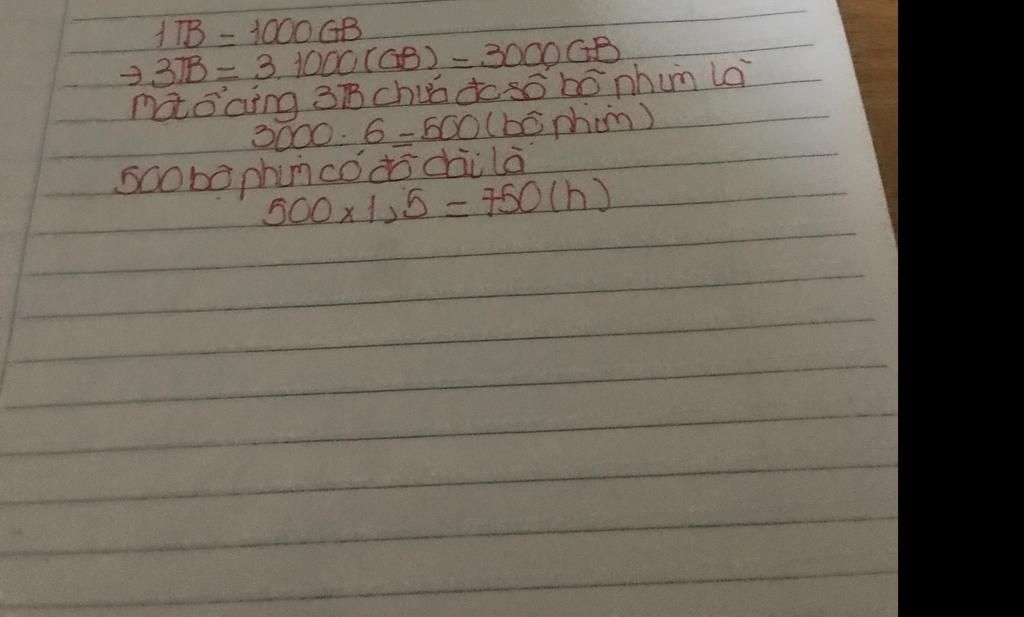 1TB = 1000GB
→ 3TB = 3.1000(GB) = 3000GB
Một ổ cứng 3TB chứa đc số bộ phim là
3000 : 6 = 500 (bộ phim)
500 bộ phim có độ dài là
500 x 1,5 = 750 (h)